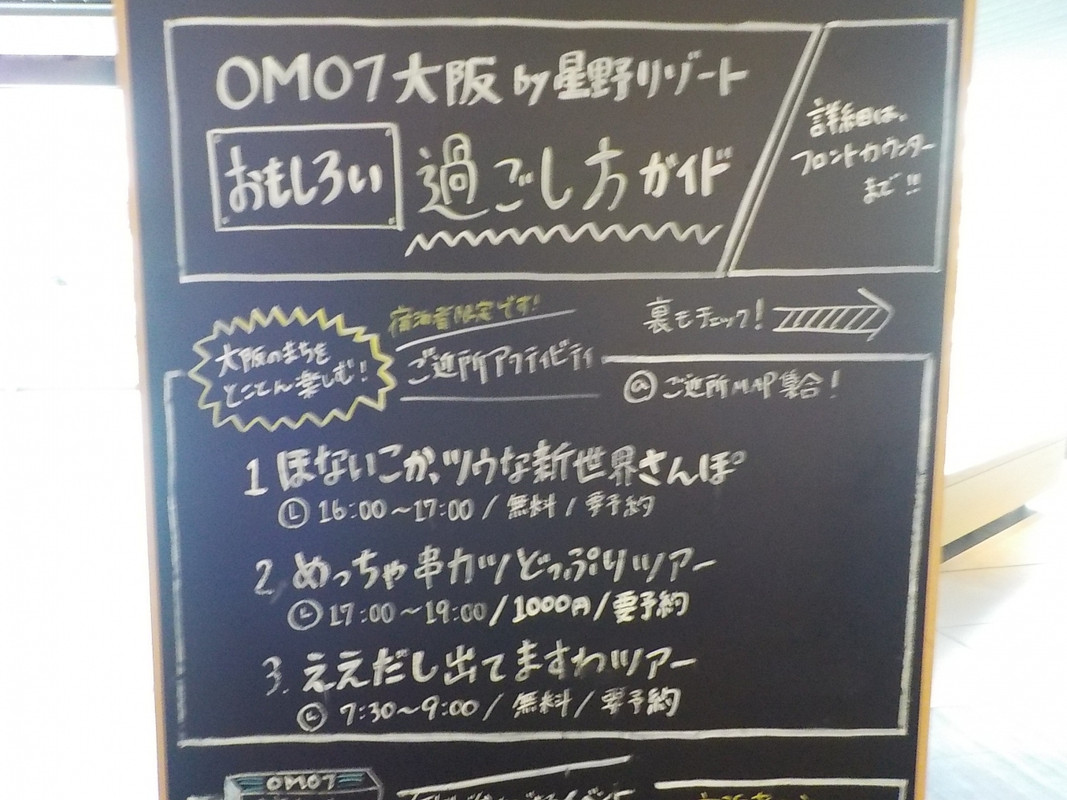 OMO7大阪 by 星野リゾート
おもしろい 過ごし方ガイド
詳細は、
フロントカウンター
まで!!
裏もチェック!
大阪のまちを
とことん楽しむ!
宿泊者限定です!
ご近所アクティビティ
@ ご近所MAP集合!
1 ほないこか、ツウな新世界さんぽ
16:00～17:00 / 無料 / 要予約
2, めっちゃ串カツどっぷりツアー
17:00～19:00 / 1000円 / 要予約
3. ええだし出てますわツアー
7:30～9:00 / 無料 / 要予約
OMO7